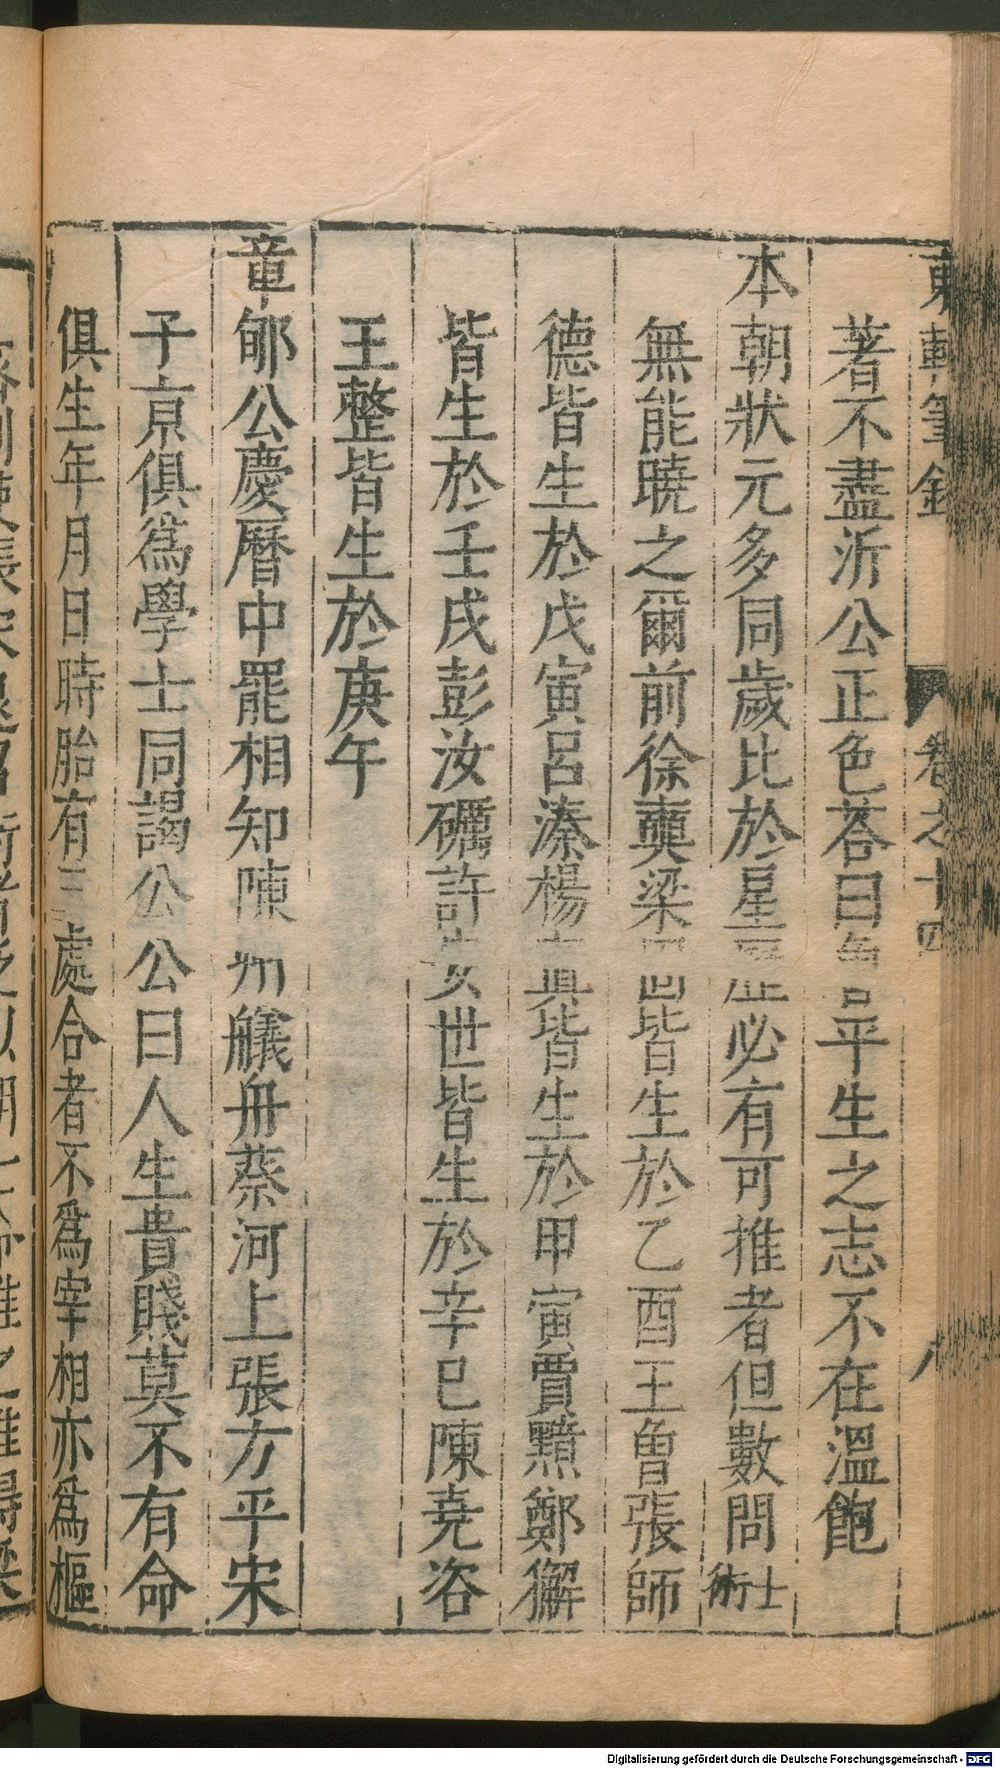 東軒筆錄 卷之十四 八
著不盡沂公正色荅曰曾平生之志不在溫飽
本朝狀元多同歲比於星歷必有可推者但數問術士
無能曉之爾前徐奭梁固皆生於乙酉王曾張師
德皆生於戊寅呂溱楊寘皆生於甲寅賈黯鄭獬
皆生於壬戌彭汝礪許安世皆生於辛巳陳堯咨
王整皆生於庚午
章郇公慶曆中罷相知陳州艤舟蔡河上張方平宋
子京俱為學士同謁公公曰人生貴賤莫不有命
俱生年月日時胎有三處合者不為宰相亦為樞